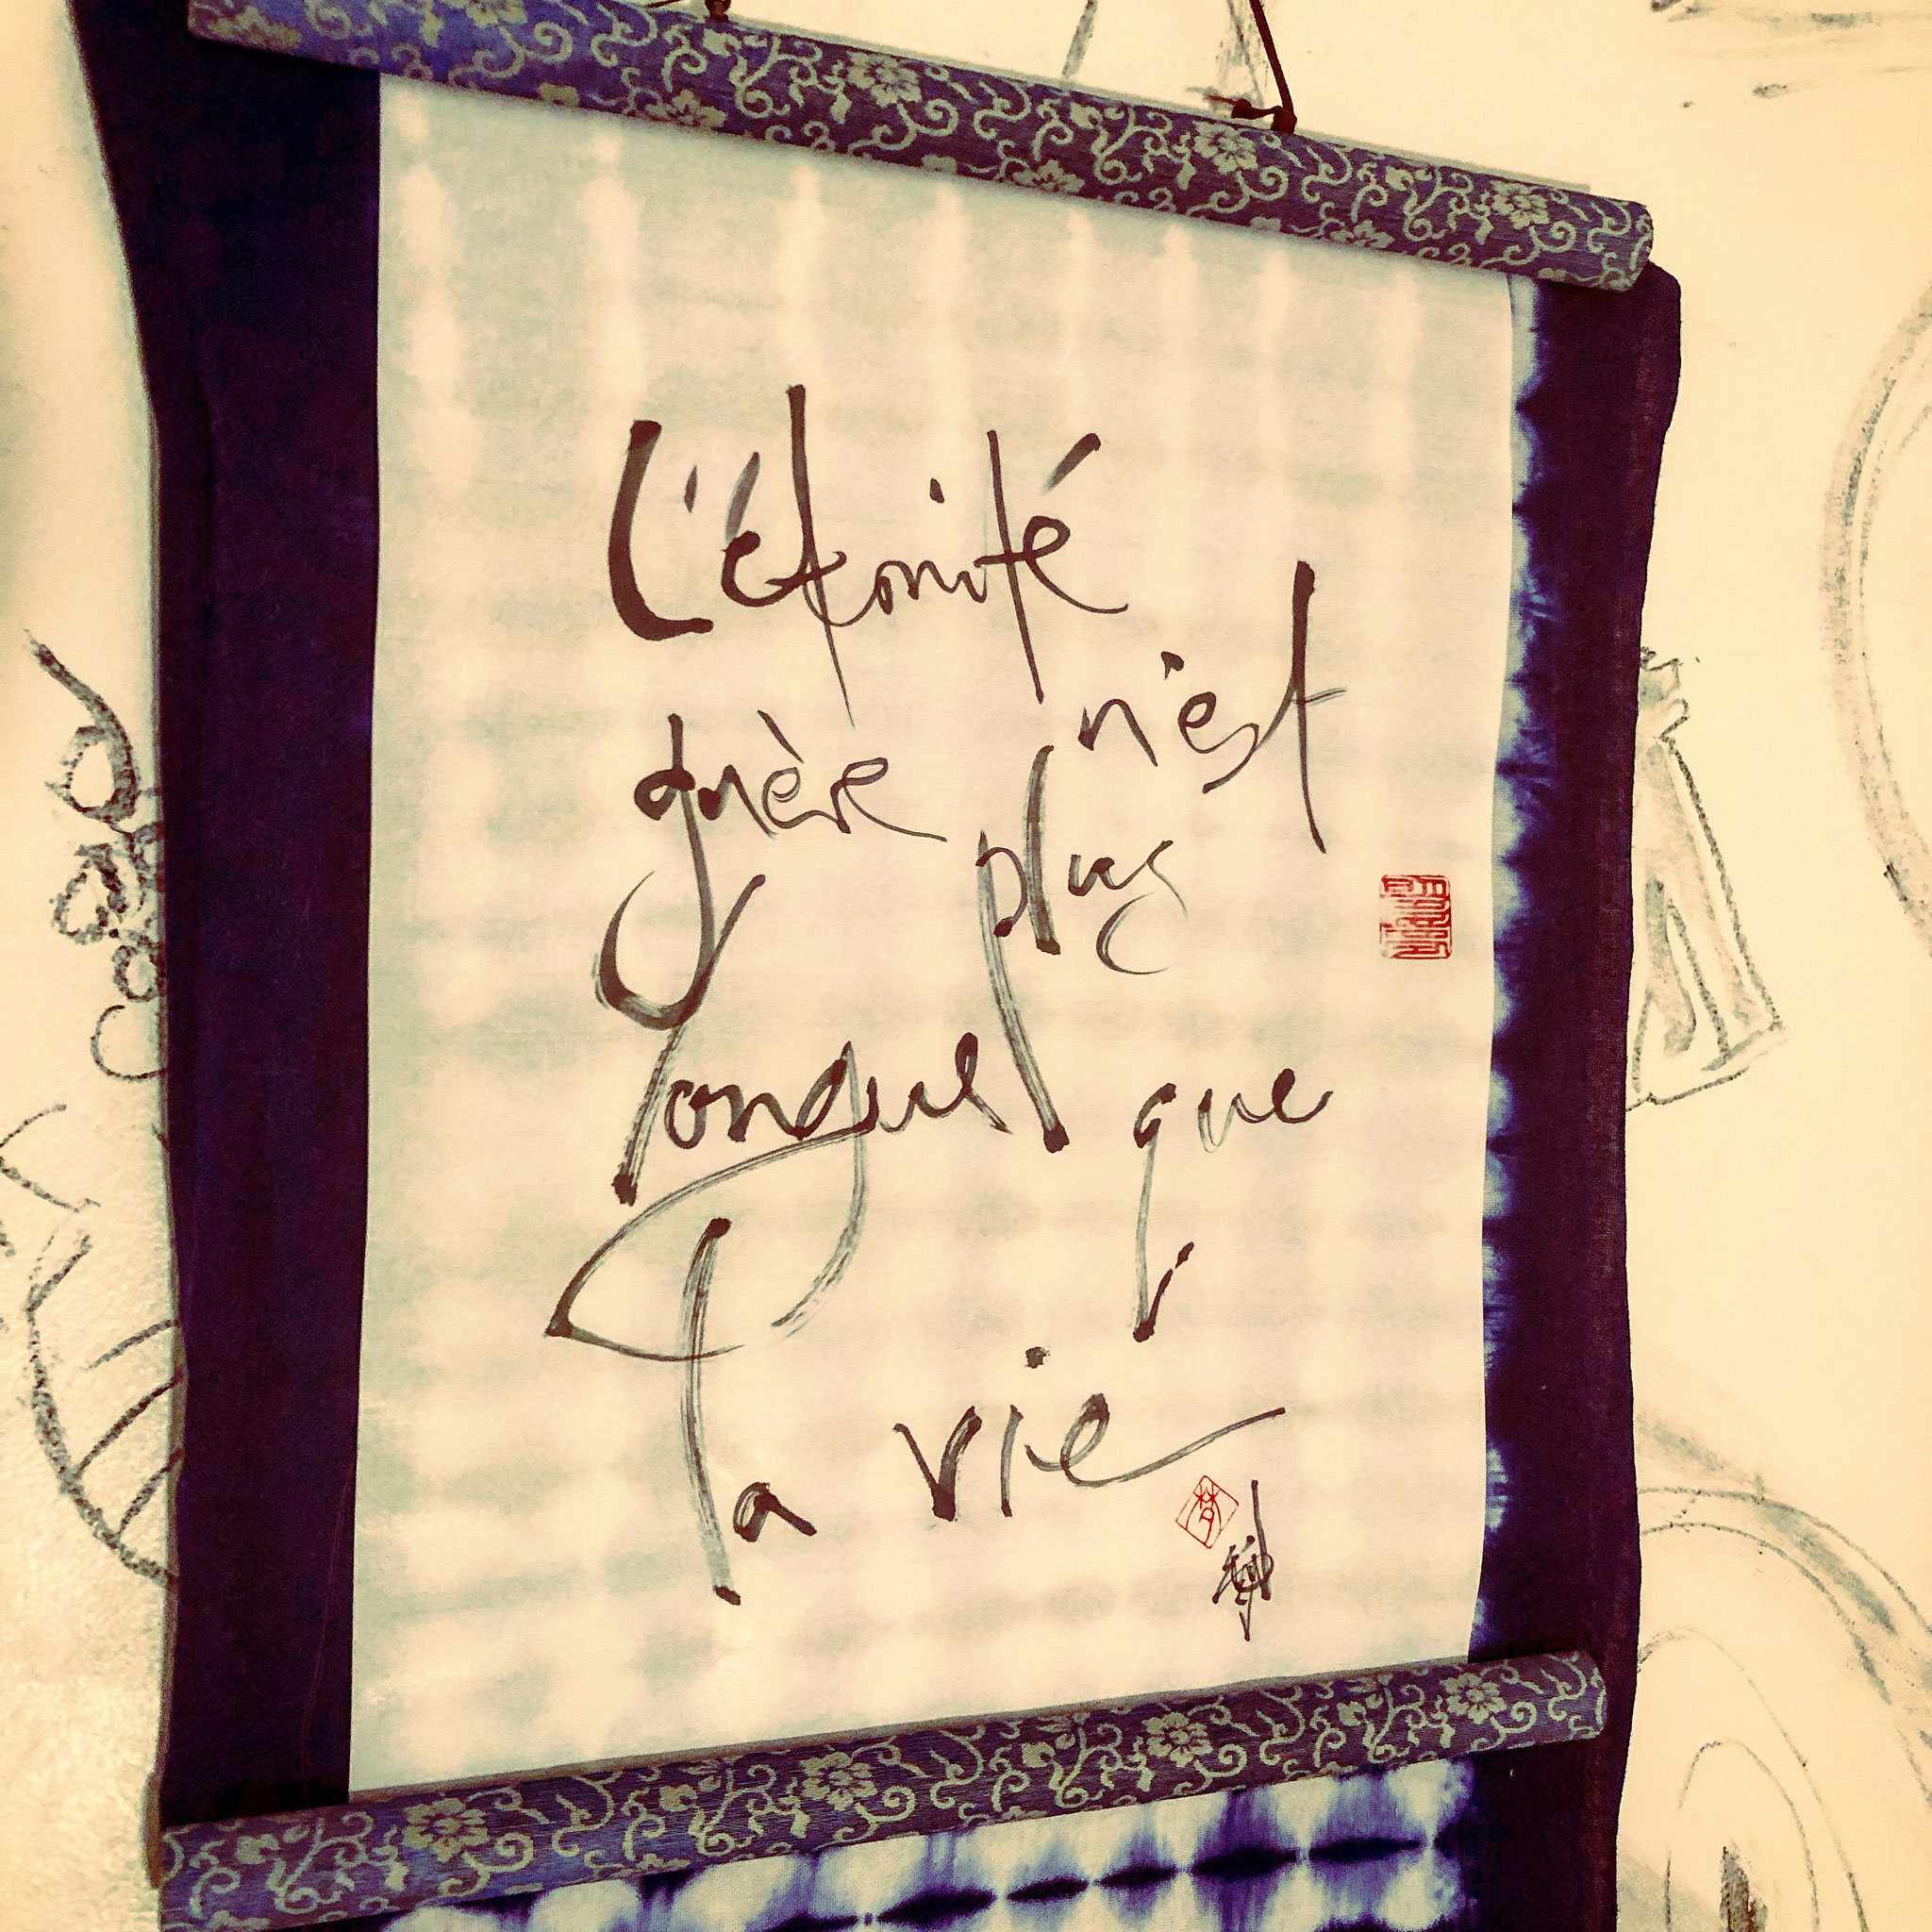 L'éternité
n'est
guère plus
longue que
la vie